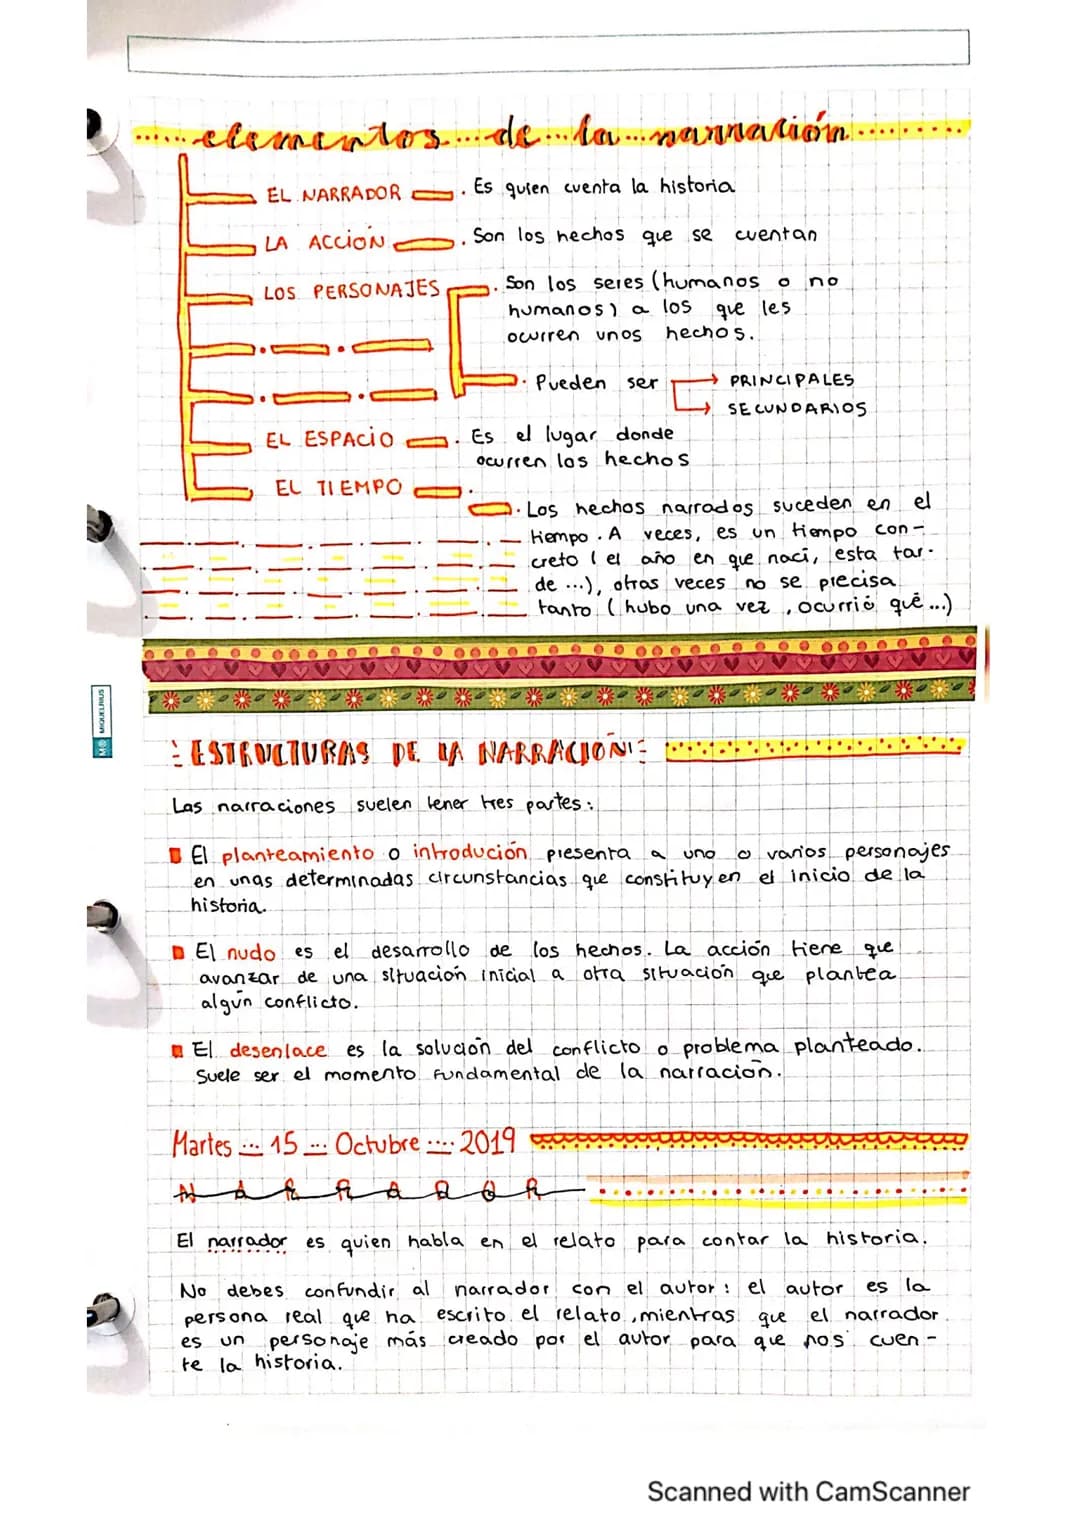 elementos de la narración
EL NARRADOR . Es quien cuenta la historia
LA ACCIÓN . Son los hechos que se cuentan
LOS PERSONAJES . Son los seres (humanos o no
humanos) a los que les
ocurren unos hechos.
. Pueden ser → PRINCIPALES
→ SECUNDARIOS
EL ESPACIO . Es el lugar donde
ocurren los hechos
EL TIEMPO .
. Los hechos narrados suceden en el
tiempo. A veces, es un tiempo con-
creto (el año en que nací, esta tar-
de ...), otras veces no se precisa
tanto (hubo una vez, ocurrió qué ...)
MIQUELRIUS
ESTRUCTURAS DE LA NARRACIÓN
Las narraciones suelen tener tres partes:
El planteamiento o introdución presenta a uno o varios personajes
en unas determinadas circunstancias que constituyen el inicio de la
historia.
El nudo es el desarrollo de los hechos. La acción tiene que
avanzar de una situación inicial a otra situación que plantea
algún conflicto.
El desenlace es la solución del conflicto o problema planteado.
Suele ser el momento fundamental de la narración.
Martes ... 15 ... Octubre .... 2019
NARRADOR
El narrador es quien habla en el relato para contar la historia.
No debes confundir al narrador con el autor: el autor es la
persona real que ha escrito el relato, mientras que el narrador
es un personaje más creado por el autor para que nos cuen-
te la historia.
Scanned with CamScanner